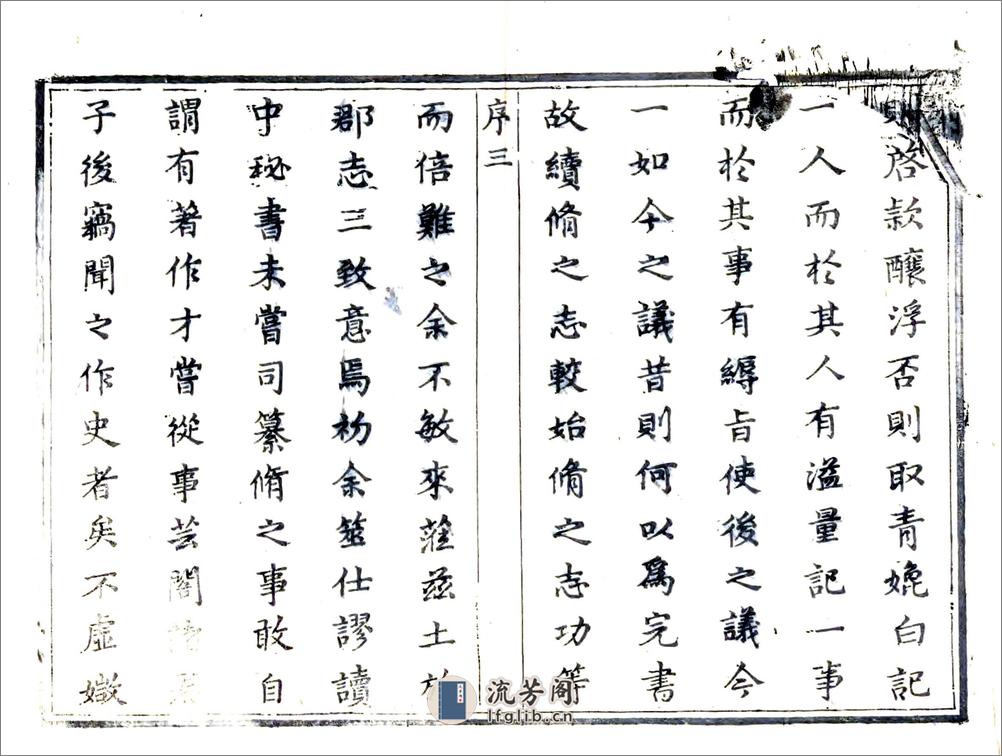 啓款釀浮否則取青媲白記
一人而於其人有溢量記一事
而於其事有縟旨使後之議今
一如今之議昔則何以爲完書
故續脩之志較始脩之志功等
序三
而倍難之余不敏來蒞茲土於
郡志三致意焉初余筮仕謬讀
中秘書未嘗司纂脩之事敢自
謂有著作才嘗從事芸閣
子後竊聞之作史者矣不虛媺
流芳阁
lfglib.cn